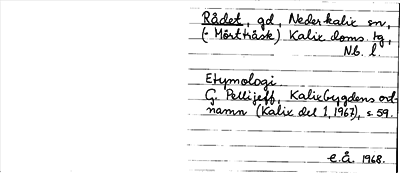 Rådet, gd, Nederkalix sn,
(= Mörtträsk) Kalix doms. tg,
Nb. l.
Etymologi
G. Pellijeff, Kalixbygdens ort-
namn (Kalix del 1, 1967), s. 59.
e.å. 1968.